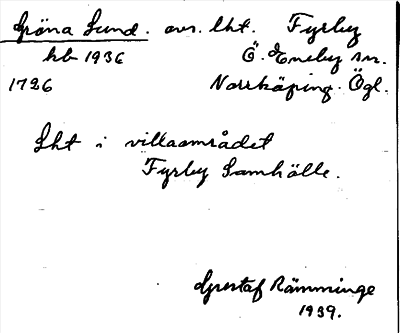 Gröna Lund. avs. lht. Fyrby
hb 1936 Ö. Eneby sn.
1726 Norrköping. Ögl.
Lht i villaområdet
Fyrby Samhälle.
Gustaf Rämminge
1939.